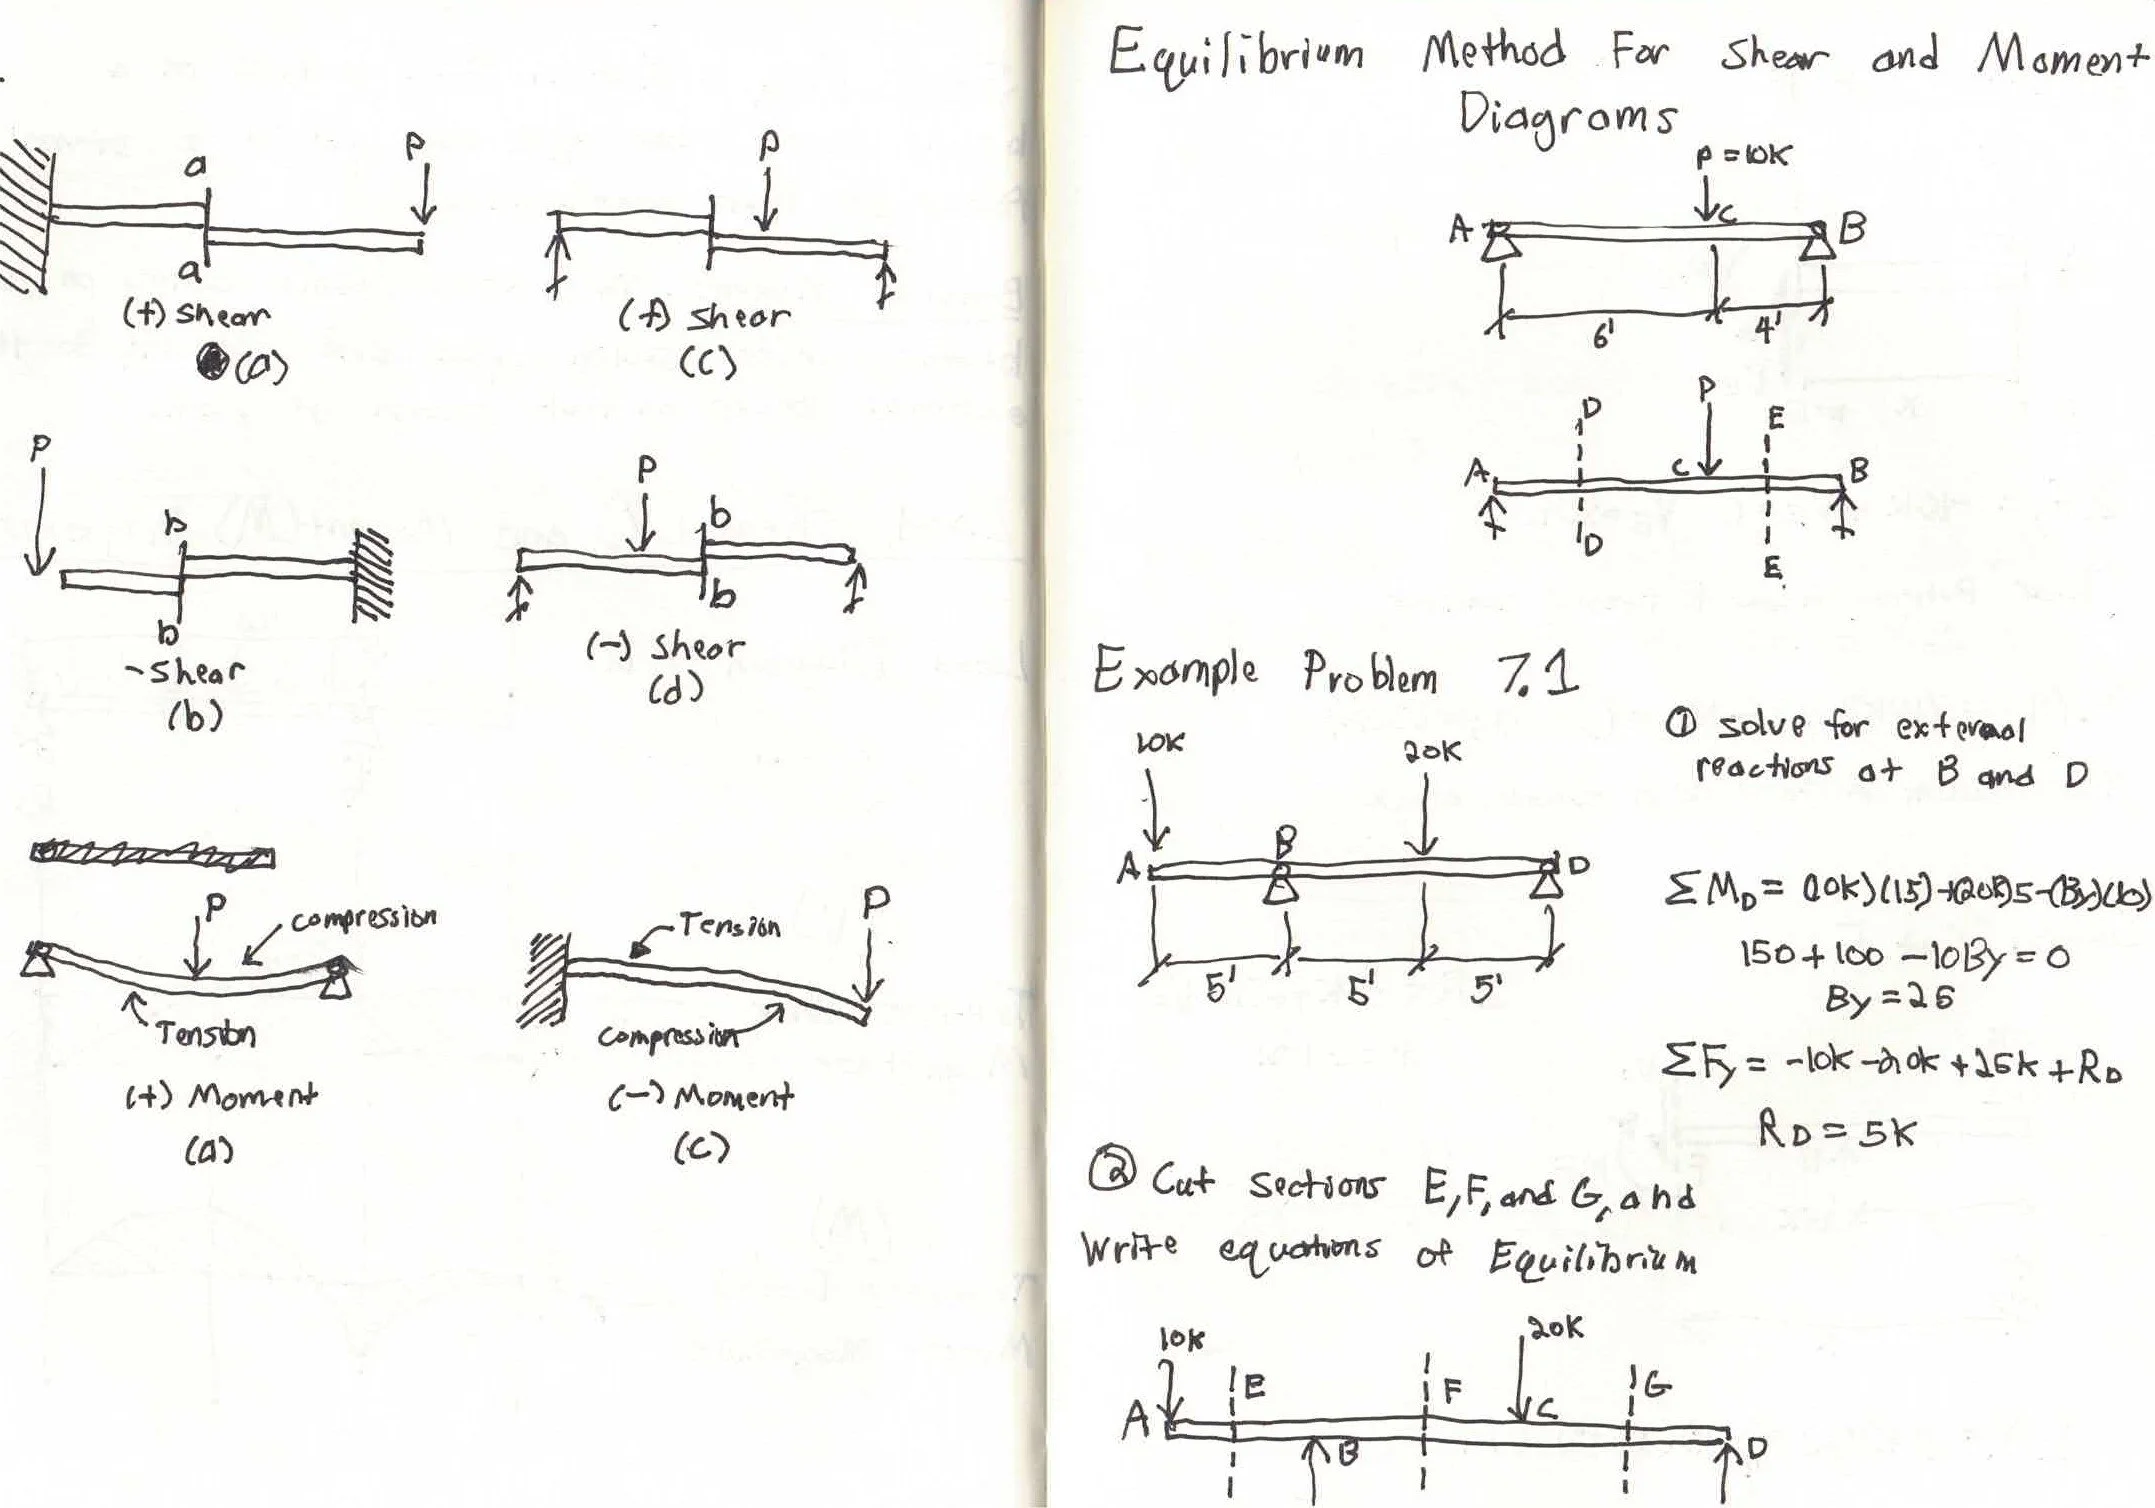 a
P
P
a
(+) shear
(a)
(+) shear
(c)
P
b
b
- shear
(b)
P
b
b
(-) shear
(d)
P
compression
Tension
(+) Moment
(a)
Tension
P
compression
(-) Moment
(c)
Equilibrium Method For Shear and Moment
Diagrams
P = 10K
A
C
B
6'
4'
D
P
E
A
C
B
D
E
Example Problem 7.1
① solve for external
reactions at B and D
10K
20K
A
B
D
5'
5'
5'
ΣMD = (10K)(15)+(20K)5-(By)(10)
150+100 -10By = 0
By = 25
ΣFy = -10K -20K +25K + RD
RD = 5K
② Cut sections E, F, and G, and
Write equations of Equilibrium
10K
20K
E
F
G
A
C
B
D